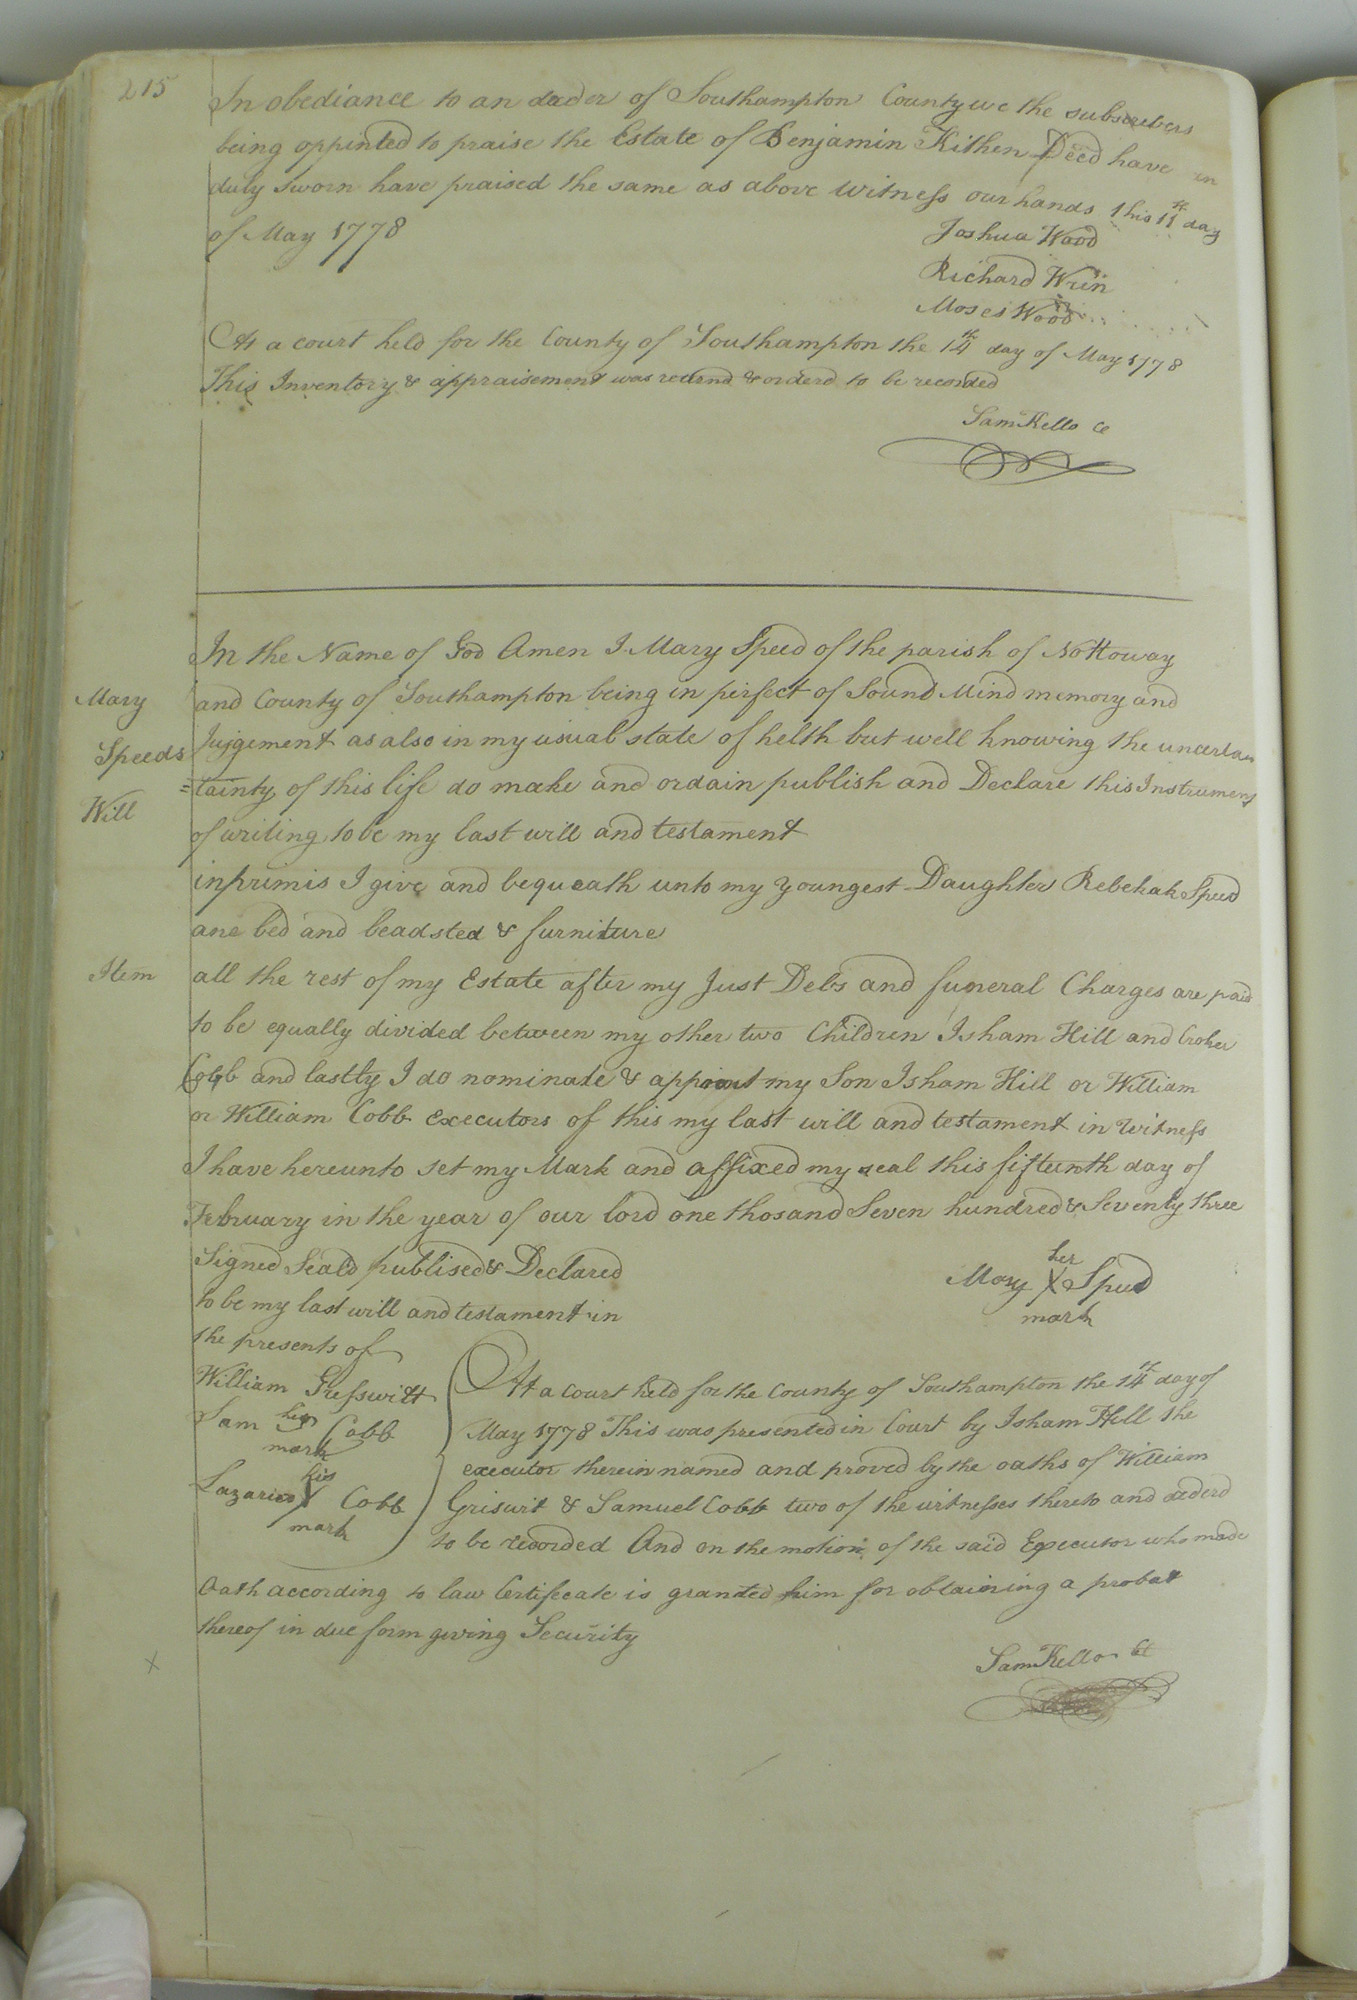 215
In obediance to an dader of Southampton County we the subscribers
being oppinted to praise the Estate of Benjamin Kithen Deed have
duly sworn have praised the same as above Witness our hands this 11th day
of May 1778
Joshua Wood
Richard Wrin
Moses Wood
At a court held for the County of Southampton the 14th day of May 1778
This Inventory & appraisement was returnd & orderd to be recorded
Sam Kello Ce
In the Name of God Amen I Mary Speed of the parish of Nottoway
Mary and County of Southampton being in pirfect of Sound Mind memory and
Speeds Jujgement as also in my usual state of helth but well knowing the uncertan
=tainty of this life do make and ordain publish and Declare this Instrument
Will
of writing to be my last will and testament
inprimis I give and bequeath unto my youngest Daughter Rebekah Speed
ane bed and beadsted & furniture
Item all the rest of my Estate after my Just Debs and funeral Charges are paid
to be equally divided between my other two Children Isham Hill and Croker
Cobb and lastly I do nominate & appoint my Son Isham Hill or William
or William Cobb executors of this my last will and testament in Witness
I have hereunto set my Mark and affixed my seal this fifteenth day of
February in the year of our lord one thosand Seven hundred & Seventy three
Signed Seald publised & Declared
to be my last will and testament in
the presents of
her
Mary X Speed
mark
William Gresswitt
Sam his Cobb
mark
his
Lazarieo X Cobb
mark
At a court held for the County of Southampton the 14th day of
May 1778 This was presented in Court by Isham Hill the
executor therein named and proved by the oaths of William
Griswit & Samuel Cobb two of the witnesses thereto and orderd
to be recorded And on the motion of the said Executor who made
Oath according to law Certifecate is granted him for obtaining a probat
thereof in due form giving Security
X
Sam Kello Ce